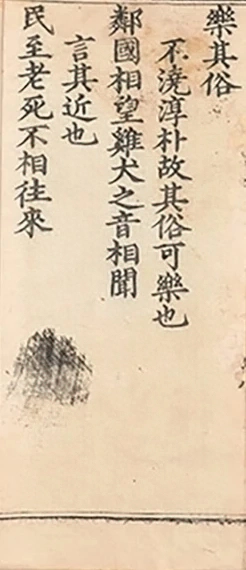 樂其俗
不澆淳朴故其俗可樂也
鄰國相望雞犬之音相聞
言其近也
民至老死不相往來